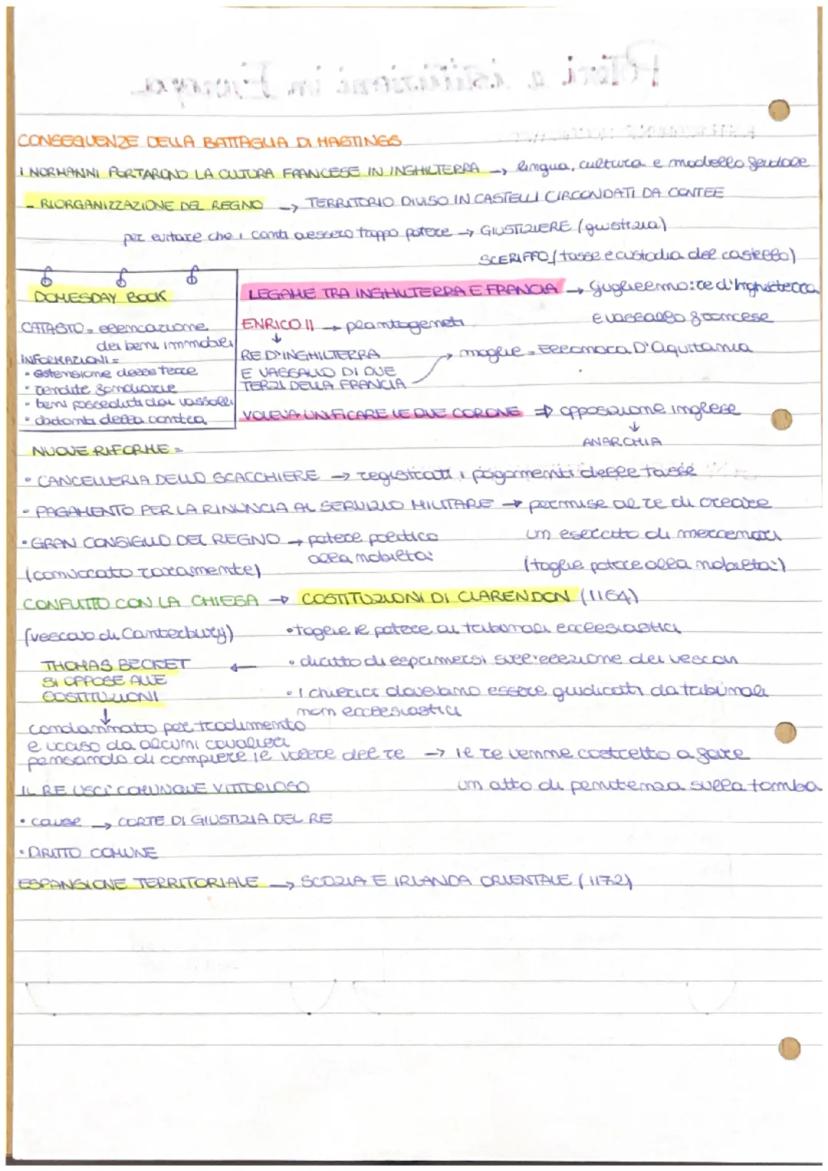 CONSEGUENZE DELLA BATTAGLIA DI HASTINGS
I NORMANNI PORTARONO LA CULTURA FRANCESE IN INGHILTERRA → lingua, cultura e modello feudale
- RIORGANIZZAZIONE DEL REGNO → TERRITORIO DIVISO IN CASTELLI CIRCONDATI DA CONTEE
per evitare che i conti avessero troppo potere → GIUSTIZIERE (giustizia)
SCERIFFO (tasse e custodia del castello)
DOMESDAY BOOK
CATASTO = elencazione
dei beni immobili
INFORMAZIONI =
• estensione delle terre
• rendite fondiarie
• beni posseduti dai vassalli
• chiamata della contea
LEGAME TRA INGHILTERRA E FRANCIA → Guglielmo: re d'Inghilterra
e vassallo francese
ENRICO II → plantageneti
↓
RE D'INGHILTERRA
E VASSALLO DI DUE
TERZI DELLA FRANCIA → moglie = Eleonora D'Aquitania
VOLEVA UNIFICARE LE DUE CORONE ⇒ opposizione inglese
↓
ANARCHIA
NUOVE RIFORME =
• CANCELLERIA DELLO SCACCHIERE → registrati i pagamenti delle tasse
- PAGAMENTO PER LA RINUNCIA AL SERVIZIO MILITARE → permise al re di creare
un esercito di mercenari
(toglie potere alla nobiltà)
• GRAN CONSIGLIO DEL REGNO → potere politico
alla nobiltà
(convocato raramente)
CONFLITTO CON LA CHIESA → COSTITUZIONI DI CLARENDON (1164)
(vescovo di Canterbury)
• toglie il potere ai tribunali ecclesiastici
• diritto di esprimersi sull'elezione dei vescovi
• I chierici dovevano essere giudicati da tribunali
non ecclesiastici
THOMAS BECKET ←
SI OPPOSE ALLE
COSTITUZIONI
↓
condannato per tradimento
e ucciso da alcuni cavalieri
pensando di compiere il volere del re → il re venne costretto a fare
un atto di penitenza sulla tomba
IL RE USCÌ COMUNQUE VITTORIOSO
• cause → CORTE DI GIUSTIZIA DEL RE
• DIRITTO COMUNE
ESPANSIONE TERRITORIALE → SCOZIA E IRLANDA ORIENTALE (1172)